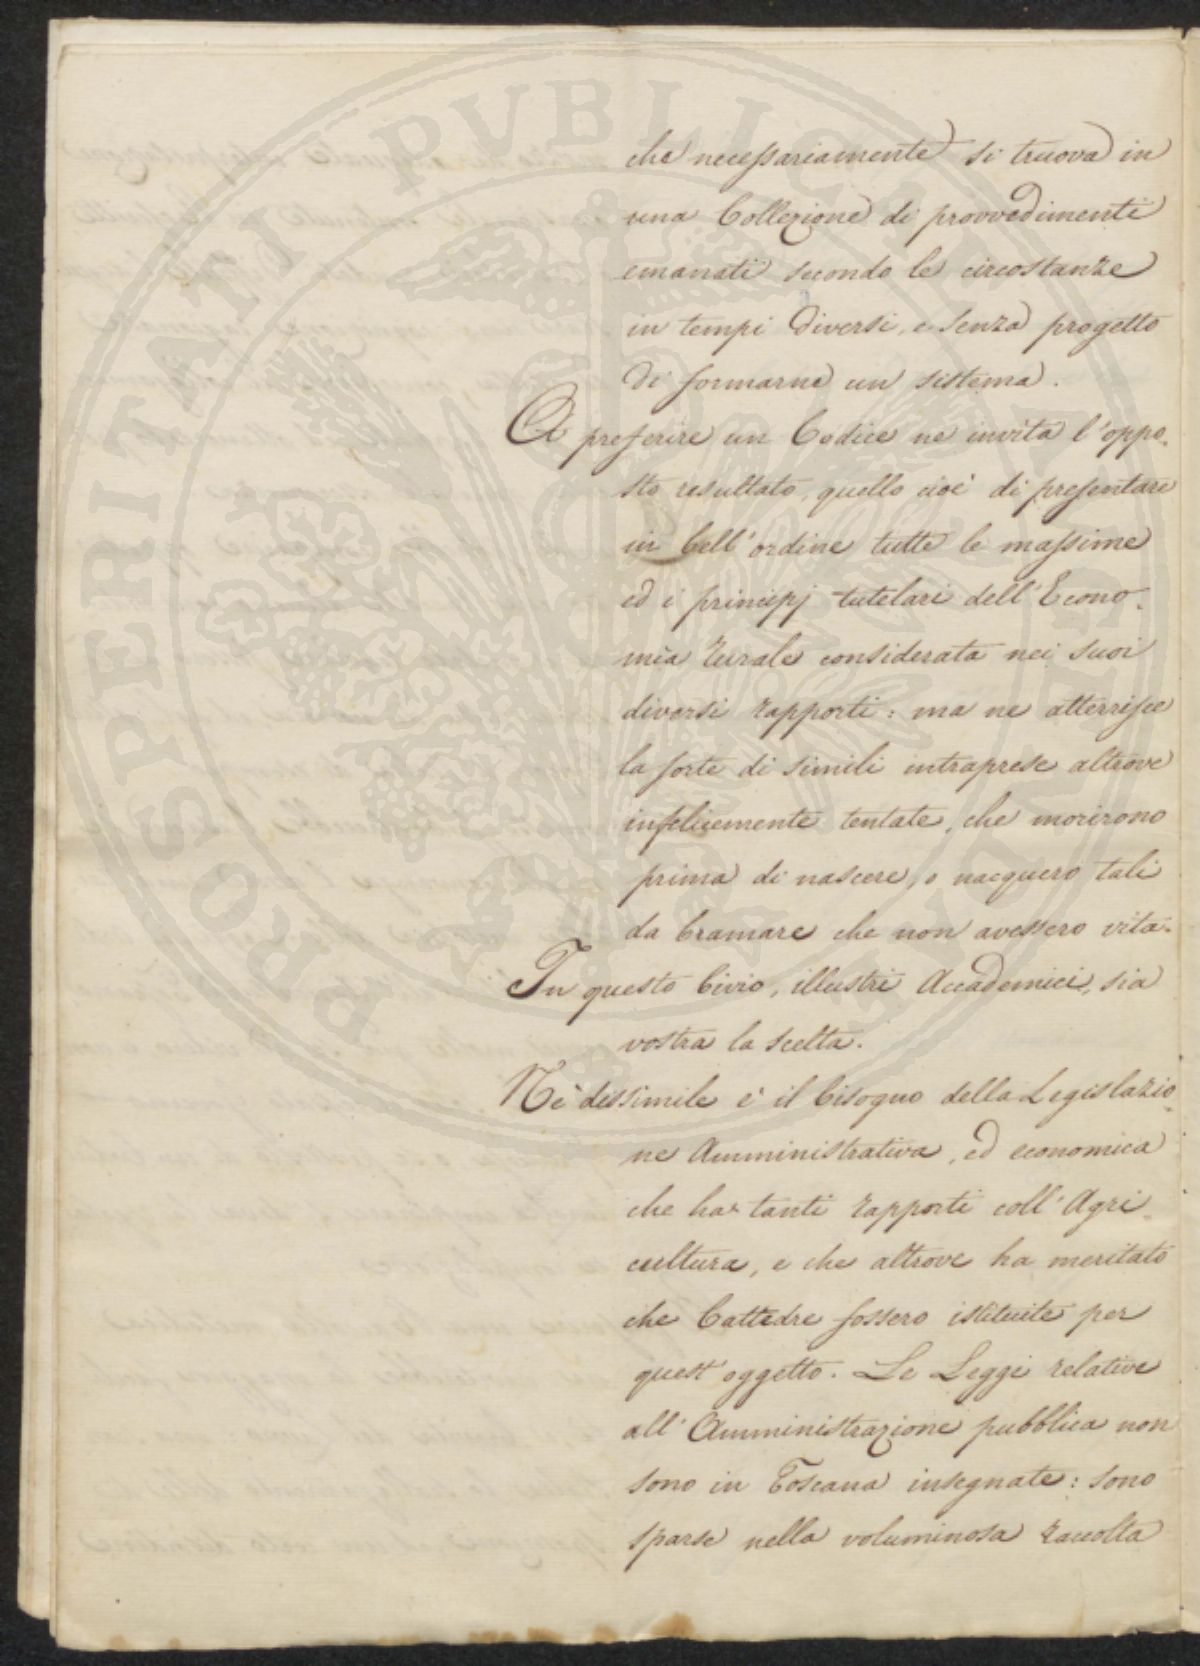 PROSPERITATI PUBLICAE AUGENDAE
che necessariamente si truova in
una Collezione di provvedimenti
emanati secondo le circostanze
in tempi diversi, e senza progetto
di formarne un sistema.
A preferire un Codice ne invita l'oppo-
sto resultato, quello cioè di presentare
in bell'ordine tutte le massime
ed i principj tutelari dell'Econo-
mia rurale considerata nei suoi
diversi rapporti: ma ne atterrisce
la sorte di simili intraprese altrove
infelicemente tentate, che morirono
prima di nascere, o nacquero tali
da bramare che non avessero vita.
In questo bivio, illustri Accademici, sia
vostra la scelta.
Nè dissimile è il bisogno della Legislazio-
ne Amministrativa, ed economica
che ha tanti rapporti coll'Agri-
cultura, e che altrove ha meritato
che Cattedre fossero istituite per
quest'oggetto. Le Leggi relative
all'Amministrazione pubblica non
sono in Toscana insegnate: sono
sparse nella voluminosa raccolta